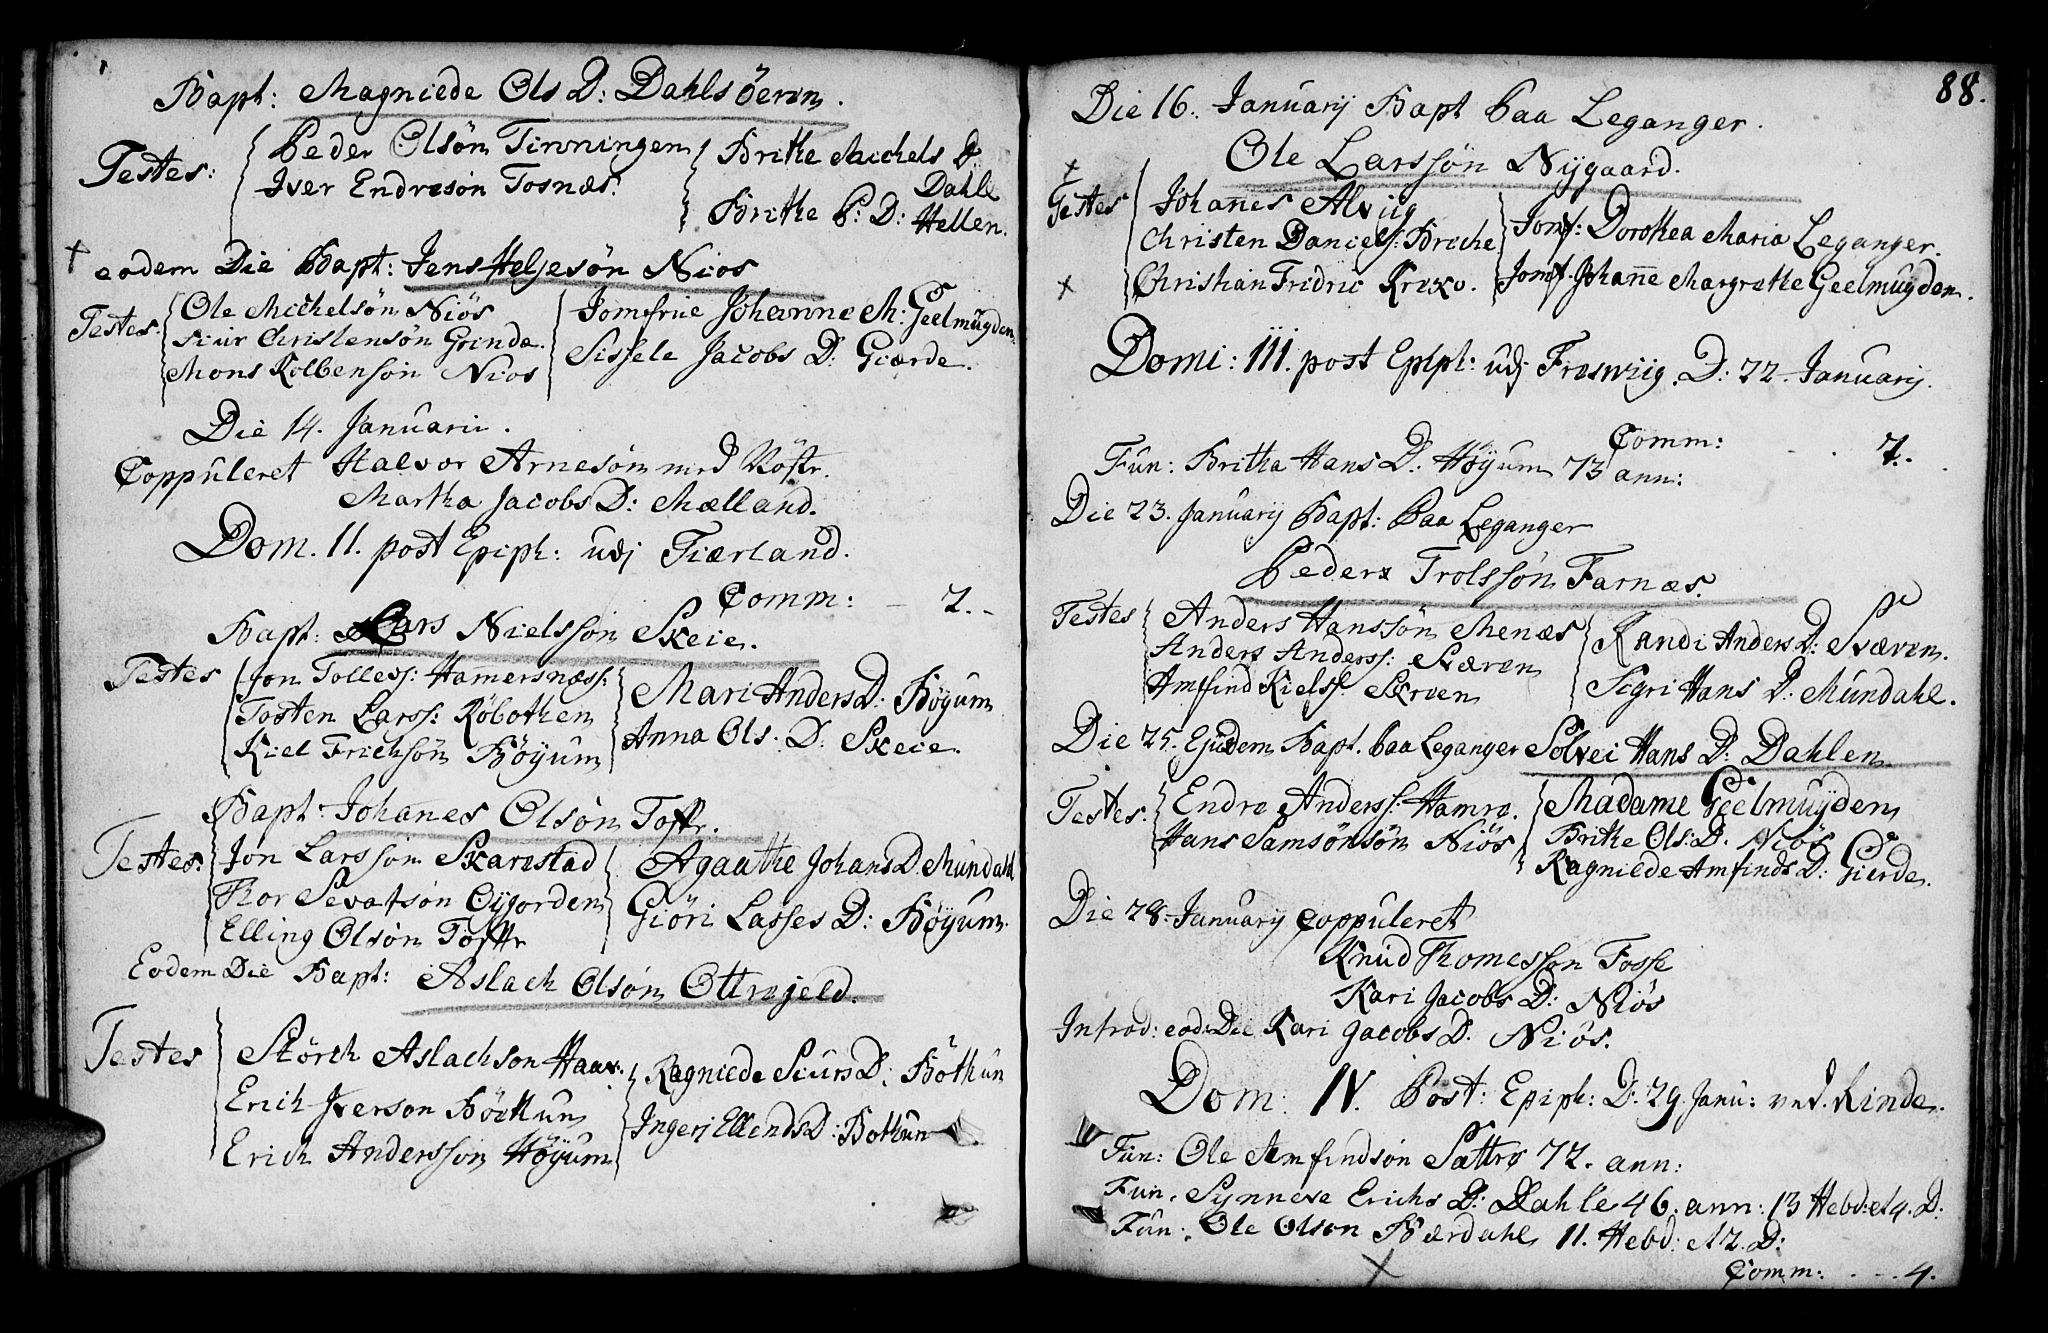 Bapt: Magniede Ols D: Dahlsöeren.
Testes:
Peder Olsön Tinningen
Iver Endresön Tosnæs.
Brithe Michels D Dahle
Brithe P: D: Hellen.
eodem Die Bapt: Jens Heljesön Nios
Testes:
Ole Michelsön Niös
Siur Christensön Grinde.
Mons Kolbensön Nios
Jomfrue Johanne M: Geelmüÿden
Sissele Jacobs D: Giærde.
Die 14. Januarii.
Coppuleret Halvor Arnesön med
Martha Jacobs D: Mælland.
Dom. II. post Epiph: udj Fiærland.
Comm: - 2. -
Bapt: Lars Nielssön Skeie.
Testes
Jon Tollefs: Hamersnæss:
Tosten Larss: Röbothen
Kiel Frichsön Böyum
Mari Anders D: Böyum
Anna Ols. D: Skeie.
Bapt: Johanes Olsön Toftr.
Testes:
Jon Larssön Skarestad
Thor Sevatsön Öygorden
Elling Olsön Toftr
Agaathe Johans D. Mundahl
Giöri Lasses D: Böyum.
Eodem Die Bapt: Aslach Olsön Ottrejeld.
Testes
Störch Aslachson Haar:
Erich Iverson Böthun
Erich Andersson Höyum
Ragniede Siurs D: Böthun
Ingerj Ellends D: Bothun
88.
Die 16. Januarij Bapt Paa Leganger.
Ole Larssön Nÿgaard.
Testes
Johanes Alviig
Christen Daniels: Breche
Christian Fridric Krexo.
Jomf: Dorothea Maria Leganger.
Jomf. Johane Margrethe Geelmuÿden.
Domi: III. post Epiph: udj Freswiig. D: 22. Januarij.
Comm: . . 7.
Fun: Britha Hans D: Höyum 73 ann:
Die 23. Januarij Bapt: Paa Leganger
Peder Trolssön Farnæs.
Testes
Anders Hanssön Menæs
Anders Anderss: Sværen
Amfind Kielss: Sværen
Randi Anders D: Sværen.
Sigri Hans D: Mundahl.
Die 25. Ejusdem Bapt. Paa Leganger Sölvei Hans D: Dahlen
Testes:
Endre Anderss: Hamre.
Hans Samsönsön Niös
Madame Geelmuÿden
Brithe Ols: D. Niös
Ragniede Amfinds D: Gierde.
Die 28. Januarij Coppuleret
Knud Thomesson Fosse
Kari Jacobs D: Niös
Introd: eod: Die Kari Jacobs D. Niös.
Dom: IV. Post: Epiph: D. 29. Janu: ved. Rinde.
Fun: Ole Amfindsön Sættre 72. ann:
Fun. Synneve Erichs D: Dahle 46. ann: 13 Hebd: et 4. D:
Fun: Ole Olson Bærdahl 11. Hebd: et 2. D:
Comm: . - - 4.